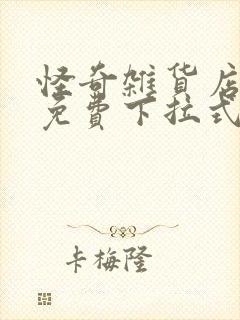 怪奇雑貨店
免費下拉式
卡梅隆